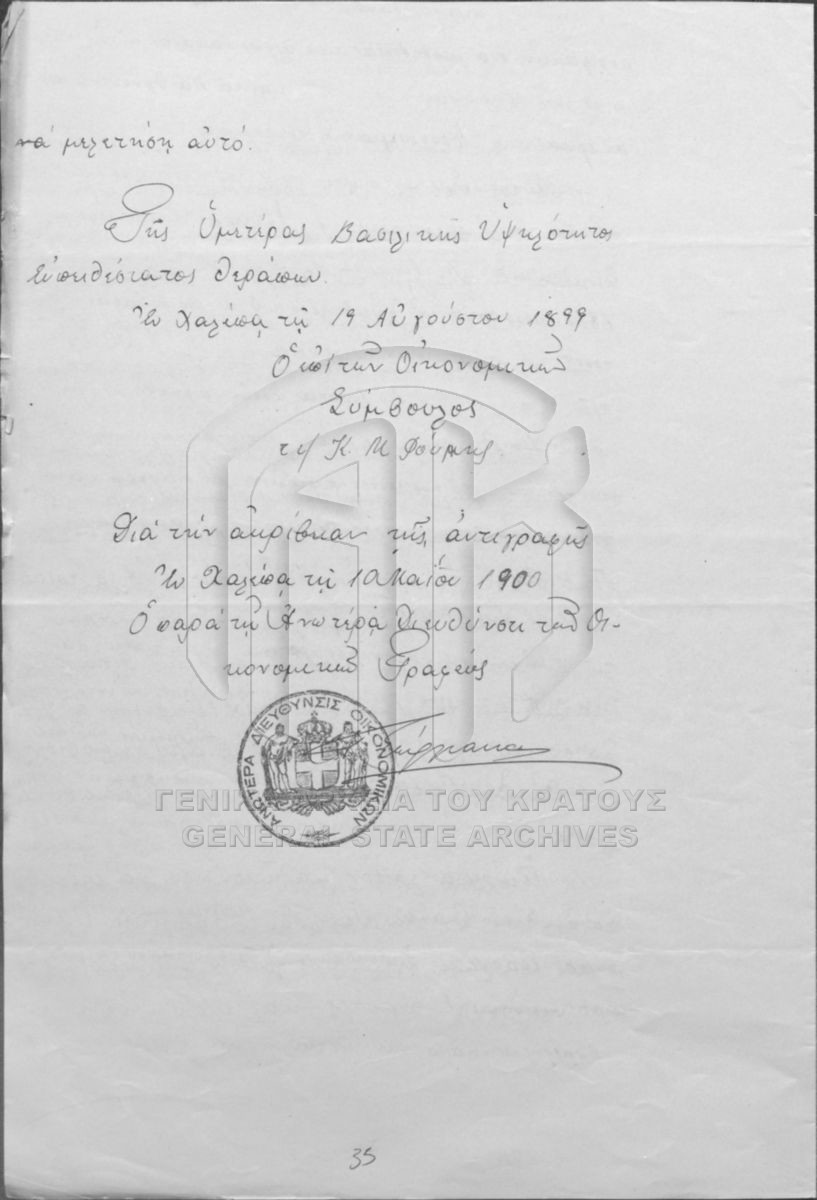 νά μελετήσῃ αὐτό.
Τῆς Ὑμετέρας Βασιλικῆς Ὑψηλότητος
εὐπειθέστατος θεράπων.
Ἐν Χαλέπᾳ τῇ 19 Αὐγούστου 1899
Ὁ ἐπὶ τῶν Οἰκονομικῶν
Σύμβουλος
τ/ Κ. Μ. Φούμης.
Διά τήν ἀκρίβειαν τῆς ἀντιγραφῆς
Ἐν Χαλέπᾳ τῇ 10 Μαΐου 1900
Ὁ παρά τῇ Ἀνωτέρᾳ Διευθύνσει τῶν Οἰ-
κονομικῶν Γραφεύς
ΑΝΩΤΕΡΑ ΔΙΕΥΘΥΝΣΙΣ ΟΙΚΟΝΟΜΙΚΩΝ
ΓΕΝΙΚΑ ΑΡΧΕΙΑ ΤΟΥ ΚΡΑΤΟΥΣ
GENERAL STATE ARCHIVES
35